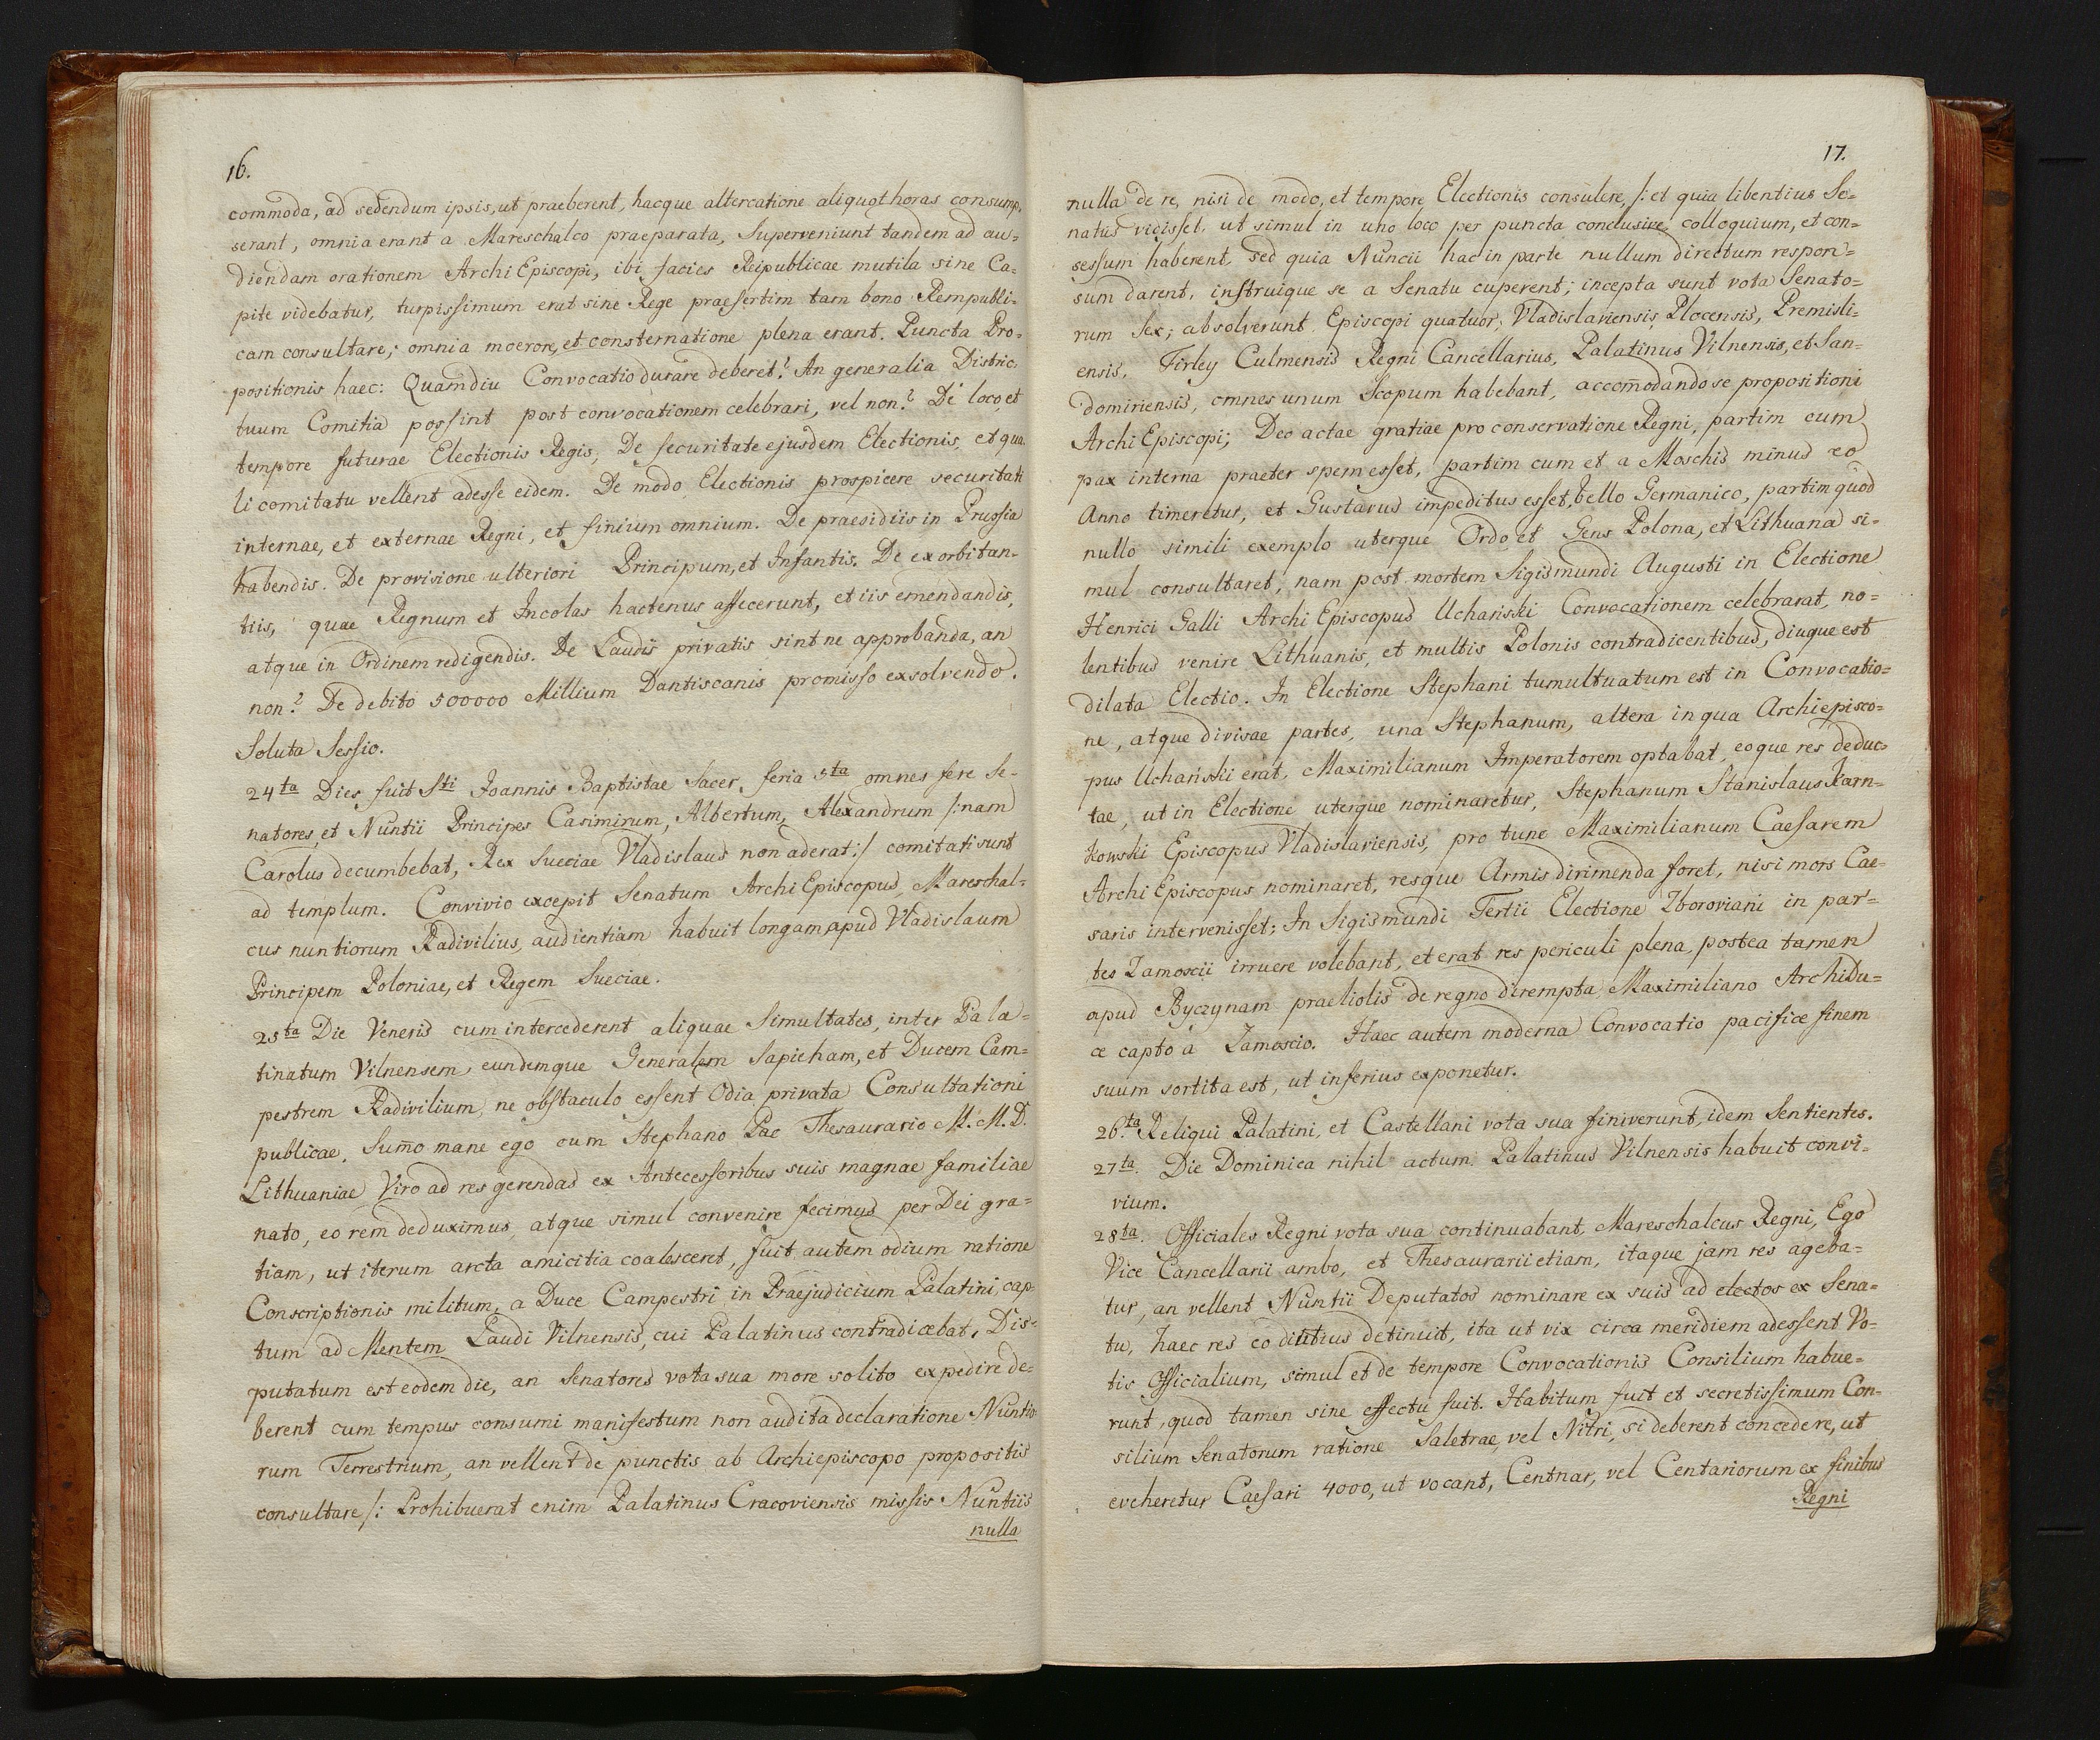 16.
commoda, ad sedendum ipsis, ut praeberent, hacque altercatione aliquot horas consump-
serant, omnia erant a Mareschalco praeparata, Superveniunt tandem ad au=
diendam orationem Archi Episcopi, ibi facies Reipublicae mutila sine Ca=
pite videbatur, turpissimum erat sine Rege praesertim tam bono Rempubli-
cam consultare; omnia moerore, et consternatione plena erant. Puncta Pro-
positionis haec: Quamdiu Convocatio durare deberet? An generalia Distric-
tuum Comitia possint post convocationem celebrari, vel non? De loco, et
tempore futurae Electionis Regis, De securitate ejusdem Electionis, et qua-
li comitatu vellent adesse eidem. De modo Electionis prospicere securitati
internae, et externae Regni, et finium omnium. De praesidiis in Prussia
habendis. De provisione ulteriori Principum, et Infantis. De exorbitan-
tiis, quae Regnum et Incolas hactenus affecerunt, et iis emendandis,
atque in Ordinem redigendis. De Laudis privatis sint ne approbanda, an
non? De debito 500000 Millium Dantiscanis promisso exsolvendo.
Soluta Sessio.
24ta Dies fuit Sti Joannis Baptistae Sacer, feria 5ta omnes fere Se-
natores, et Nuntii Principes Casimirum, Albertum, Alexandrum /:nam
Carolus decumbebat, Rex Sueciae Vladislaus non aderat:/ comitati sunt
ad templum. Convivio excepit Senatum Archi Episcopus, Mareschal=
cus nuntiorum Radivilius, audientiam habuit longam apud Vladislaum
Principem Poloniae, et Regem Sueciae.
25ta Die Veneris cum intercederent aliquae Simultates, inter Pala=
tinatum Vilnensem, eundemque Generalem Sapieham, et Ducem Cam=
pestrem Radivilium, ne obstaculo essent Odia privata Consultationi
publicae, Sum̄o mane ego cum Stephano Pac Thesaurario M. M. D.
Lithuaniae Viro ad res gerendas ex Antecessoribus suis magnae familiae
nato, eo rem deduximus, atque simul convenire fecimus per Dei gra=
tiam, ut iterum arcta amicitia coalesceret, fuit autem odium ratione
Conscriptionis militum, a Duce Campestri in Praejudicium Palatini, cap-
tum ad Mentem Laudi Vilnensis, cui Palatinus contradicebat, Dis-
putatum est eodem die, an Senatores vota sua more solito expedire de-
berent cum tempus consumi manifestum non audita declaratione Nuntio-
rum Terrestrium, an vellent de punctis ab Archiepiscopo propositis
consultare /: Prohibuerat enim Palatinus Cracoviensis missis Nuntiis
nulla
17.
nulla de re, nisi de modo, et tempore Electionis consulere, /: et quia libentius Se=
natus vidisset, ut simul in uno loco per puncta conclusive, colloquium, et con-
sessum haberent, sed quia Nuncii hac in parte nullum directum respon=
sum darent, instruique se a Senatu cuperent; incepta sunt vota Senato=
rum Sex; absolverunt Episcopi quatuor, Vladislaviensis, Plocensis, Premisli=
ensis, Firley Culmensis Regni Cancellarius, Palatinus Vilnensis, et San=
domiriensis, omnes unum Scopum habebant, accom̄odando se propositioni
Archi Episcopi; Deo actae gratiae pro conservatione Regni, partim cum
pax interna praeter spem esset, partim cum et a Moschis minus eo
Anno timeretur, et Gustavus impeditus esset, bello Germanico, partim quod
nullo simili exemplo uterque Ordo et Gens Polona, et Lithuana si-
mul consultaret, nam post mortem Sigismundi Augusti in Electione
Henrici Galli Archi Episcopus Uchański Convocationem celebrarat, no=
lentibus venire Lithuanis, et multis Polonis contradicentibus, diuque est
dilata Electio. In Electione Stephani tumultuatum est in Convocatio=
ne, atque divisae partes, una Stephanum, altera in qua Archiepisco=
pus Uchański erat, Maximilianum Imperatorem optabat, eoque res deduc-
tae, ut in Electione uterque nominaretur, Stephanum Stanislaus Karn=
kowski Episcopus Vladislaviensis, pro tunc Maximilianum Caesarem
Archi Episcopus nominaret, resque Armis dirimenda foret, nisi mors Cae-
saris intervenisset; In Sigismundi Tertii Electione Zboroviani in par=
tes Zamoscii irruere volebant, et erat res periculi plena, postea tamen
apud Byczynam praeliolis de regno dirempta, Maximiliano Archidu=
ce capto à Zamoscio. Haec autem moderna Convocatio pacifice finem
suum sortita est, ut inferius exponetur.
26.ta Reliqui Palatini, et Castellani vota sua finiverunt, idem Sentientes.
27ta. Die Dominica nihil actum. Palatinus Vilnensis habuit convi-
vium.
28ta. Officiales Regni vota sua continuabant, Mareschalcus Regni, Ego
Vice Cancellarii ambo, et Thesaurarii etiam, itaque jam res ageba=
tur, an vellent Nuntii Deputatos nominare ex suis ad electos ex Sena=
tu, haec res eo diutius detinuit, ita ut vix circa meridiem adessent Vo=
tis Officialium, simul et de tempore Convocationis Consilium habue=
runt, quod tamen sine effectu fuit. Habitum fuit et secretissimum Con-
silium Senatorum ratione Saletrae, vel Nitri, si deberent concedere, ut
eveheretur Caesari 4000, ut vocant, Centnar, vel Centariorum ex finibus
Regni